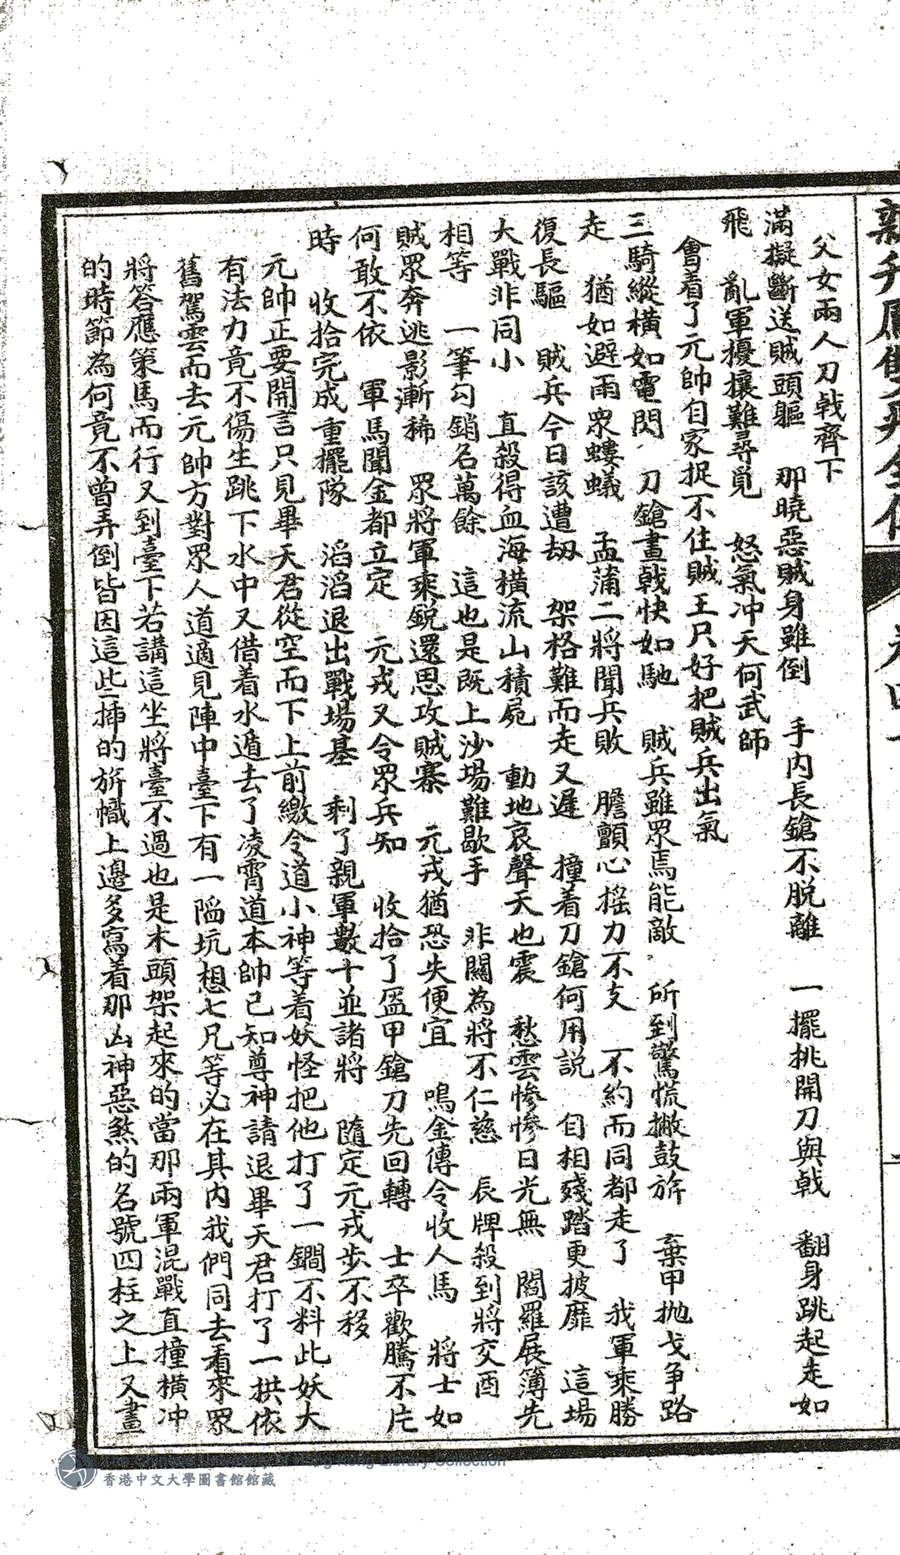 父女兩人刀戟齊下
滿擬斷送賊頭軀　那曉惡賊身雖倒　手內長鎗不脱離　一擺挑開刀與戟　翻身跳起走如
飛　亂軍擾攘難尋覓　怒氣冲天何武師
會着了元帥自家捉不住賊王只好把賊兵出氣
三騎縱橫如電閃　刀鎗畫戟快如馳　賊兵雖眾焉能敵　所到驚慌撇鼓旂　棄甲拋戈爭路
走　猶如避雨衆螻蟻　孟蒲二將聞兵敗　膽顫心摇力不支　不約而同都走了　我軍乘勝
復長驅　賊兵今日該遭刼　架格難而走又遲　撞着刀鎗何用説　自相殘踏更披靡　這場
大戰非同小　直殺得血海橫流山積屍　動地哀聲天也震　愁雲慘慘日光無　閻羅展簿先
相等　一筆勾銷名萬餘　這也是既上沙場難歇手　非關為將不仁慈　辰牌殺到將交酉
賊眾奔逃影漸稀　眾將軍乘鋭還思攻賊寨　元戎猶恐失便宜　鳴金傳令收人馬　將士如
何敢不依　軍馬聞金都立定　元戎又令眾兵知　收拾了盔甲鎗刀先回轉　士卒歡騰不片
時　收拾完成重擺隊　滔滔退出戰場基　剩了親軍數十並諸將　隨定元戎步不移
元帥正要開言只見畢天君從空而下上前繳令道小神等着妖怪把他打了一鐧不料此妖大
有法力竟不傷生跳下水中又借着水遁去了凌霄道本帥已知尊神請退畢天君打了一拱依
舊駕雲而去元帥方對眾人道適見陣中臺下有一陷坑想七兄等必在其內我們同去看來眾
將答應策馬而行又到臺下若講這坐將臺不過也是木頭架起來的當那兩軍混戰直撞橫冲
的時節為何竟不曾弄倒皆因這些揷的旂幟上邊多寫着那凶神惡煞的名號四柱之上又畫
香港中文大學圖書館館藏